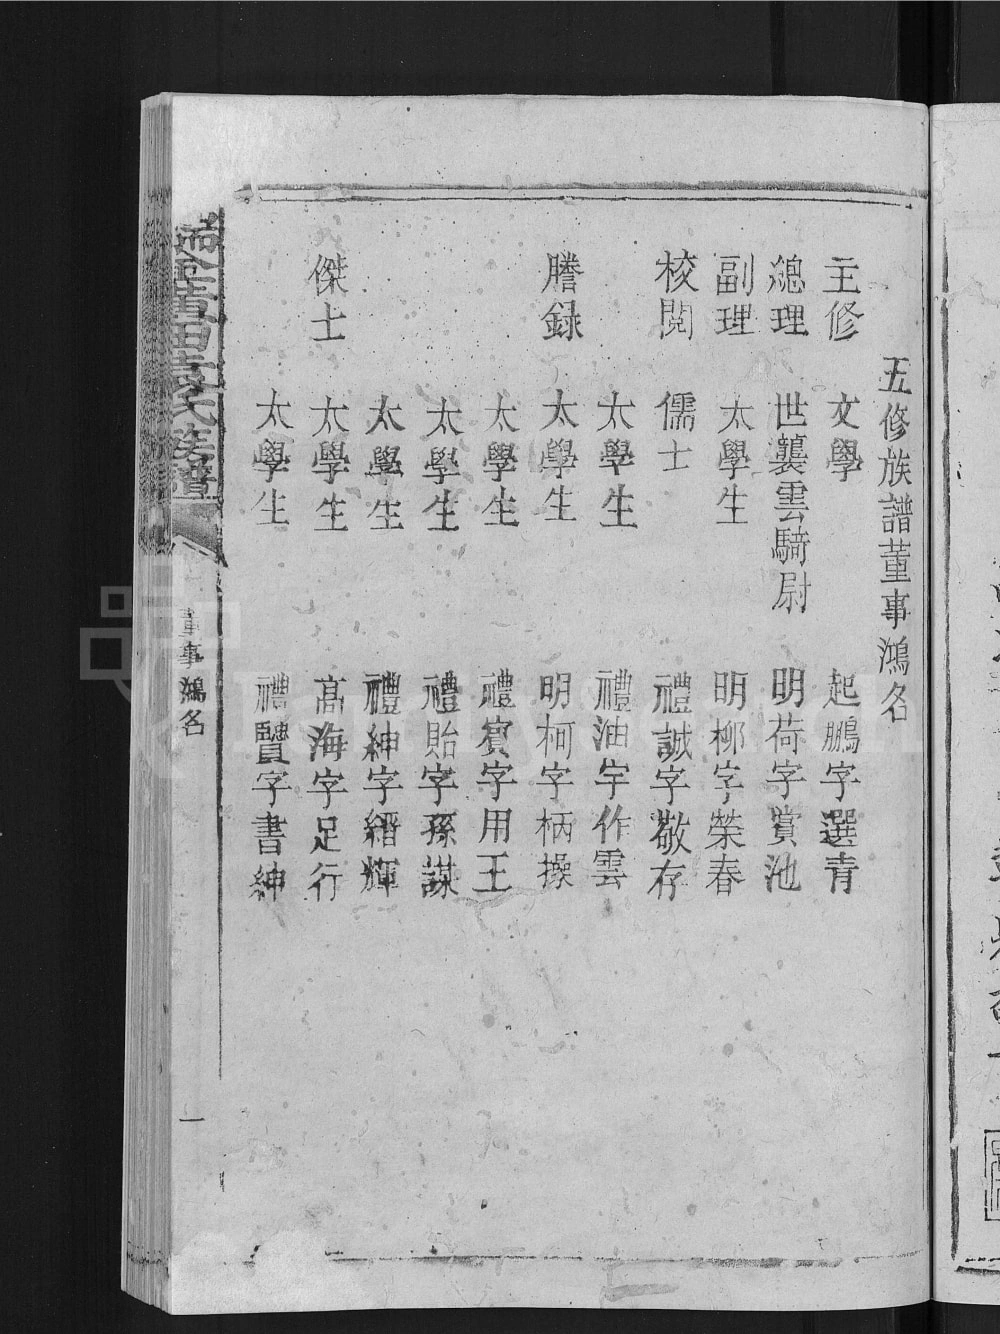 五修族譜董事鴻名
主修 文學 起鵬字選青
總理 世襲雲騎尉 明荷字賞池
副理 太學生 明柳字榮春
校閱 儒士 禮誠字敬存
太學生 禮油字作雲
謄録 太學生 明柯字柄操
太學生 禮賓字用王
太學生 禮貽字孫謀
太學生 禮紳字縉輝
傑士 太學生 高海字足行
太學生 禮賢字書紳
袁氏族譜
董事鴻名
一